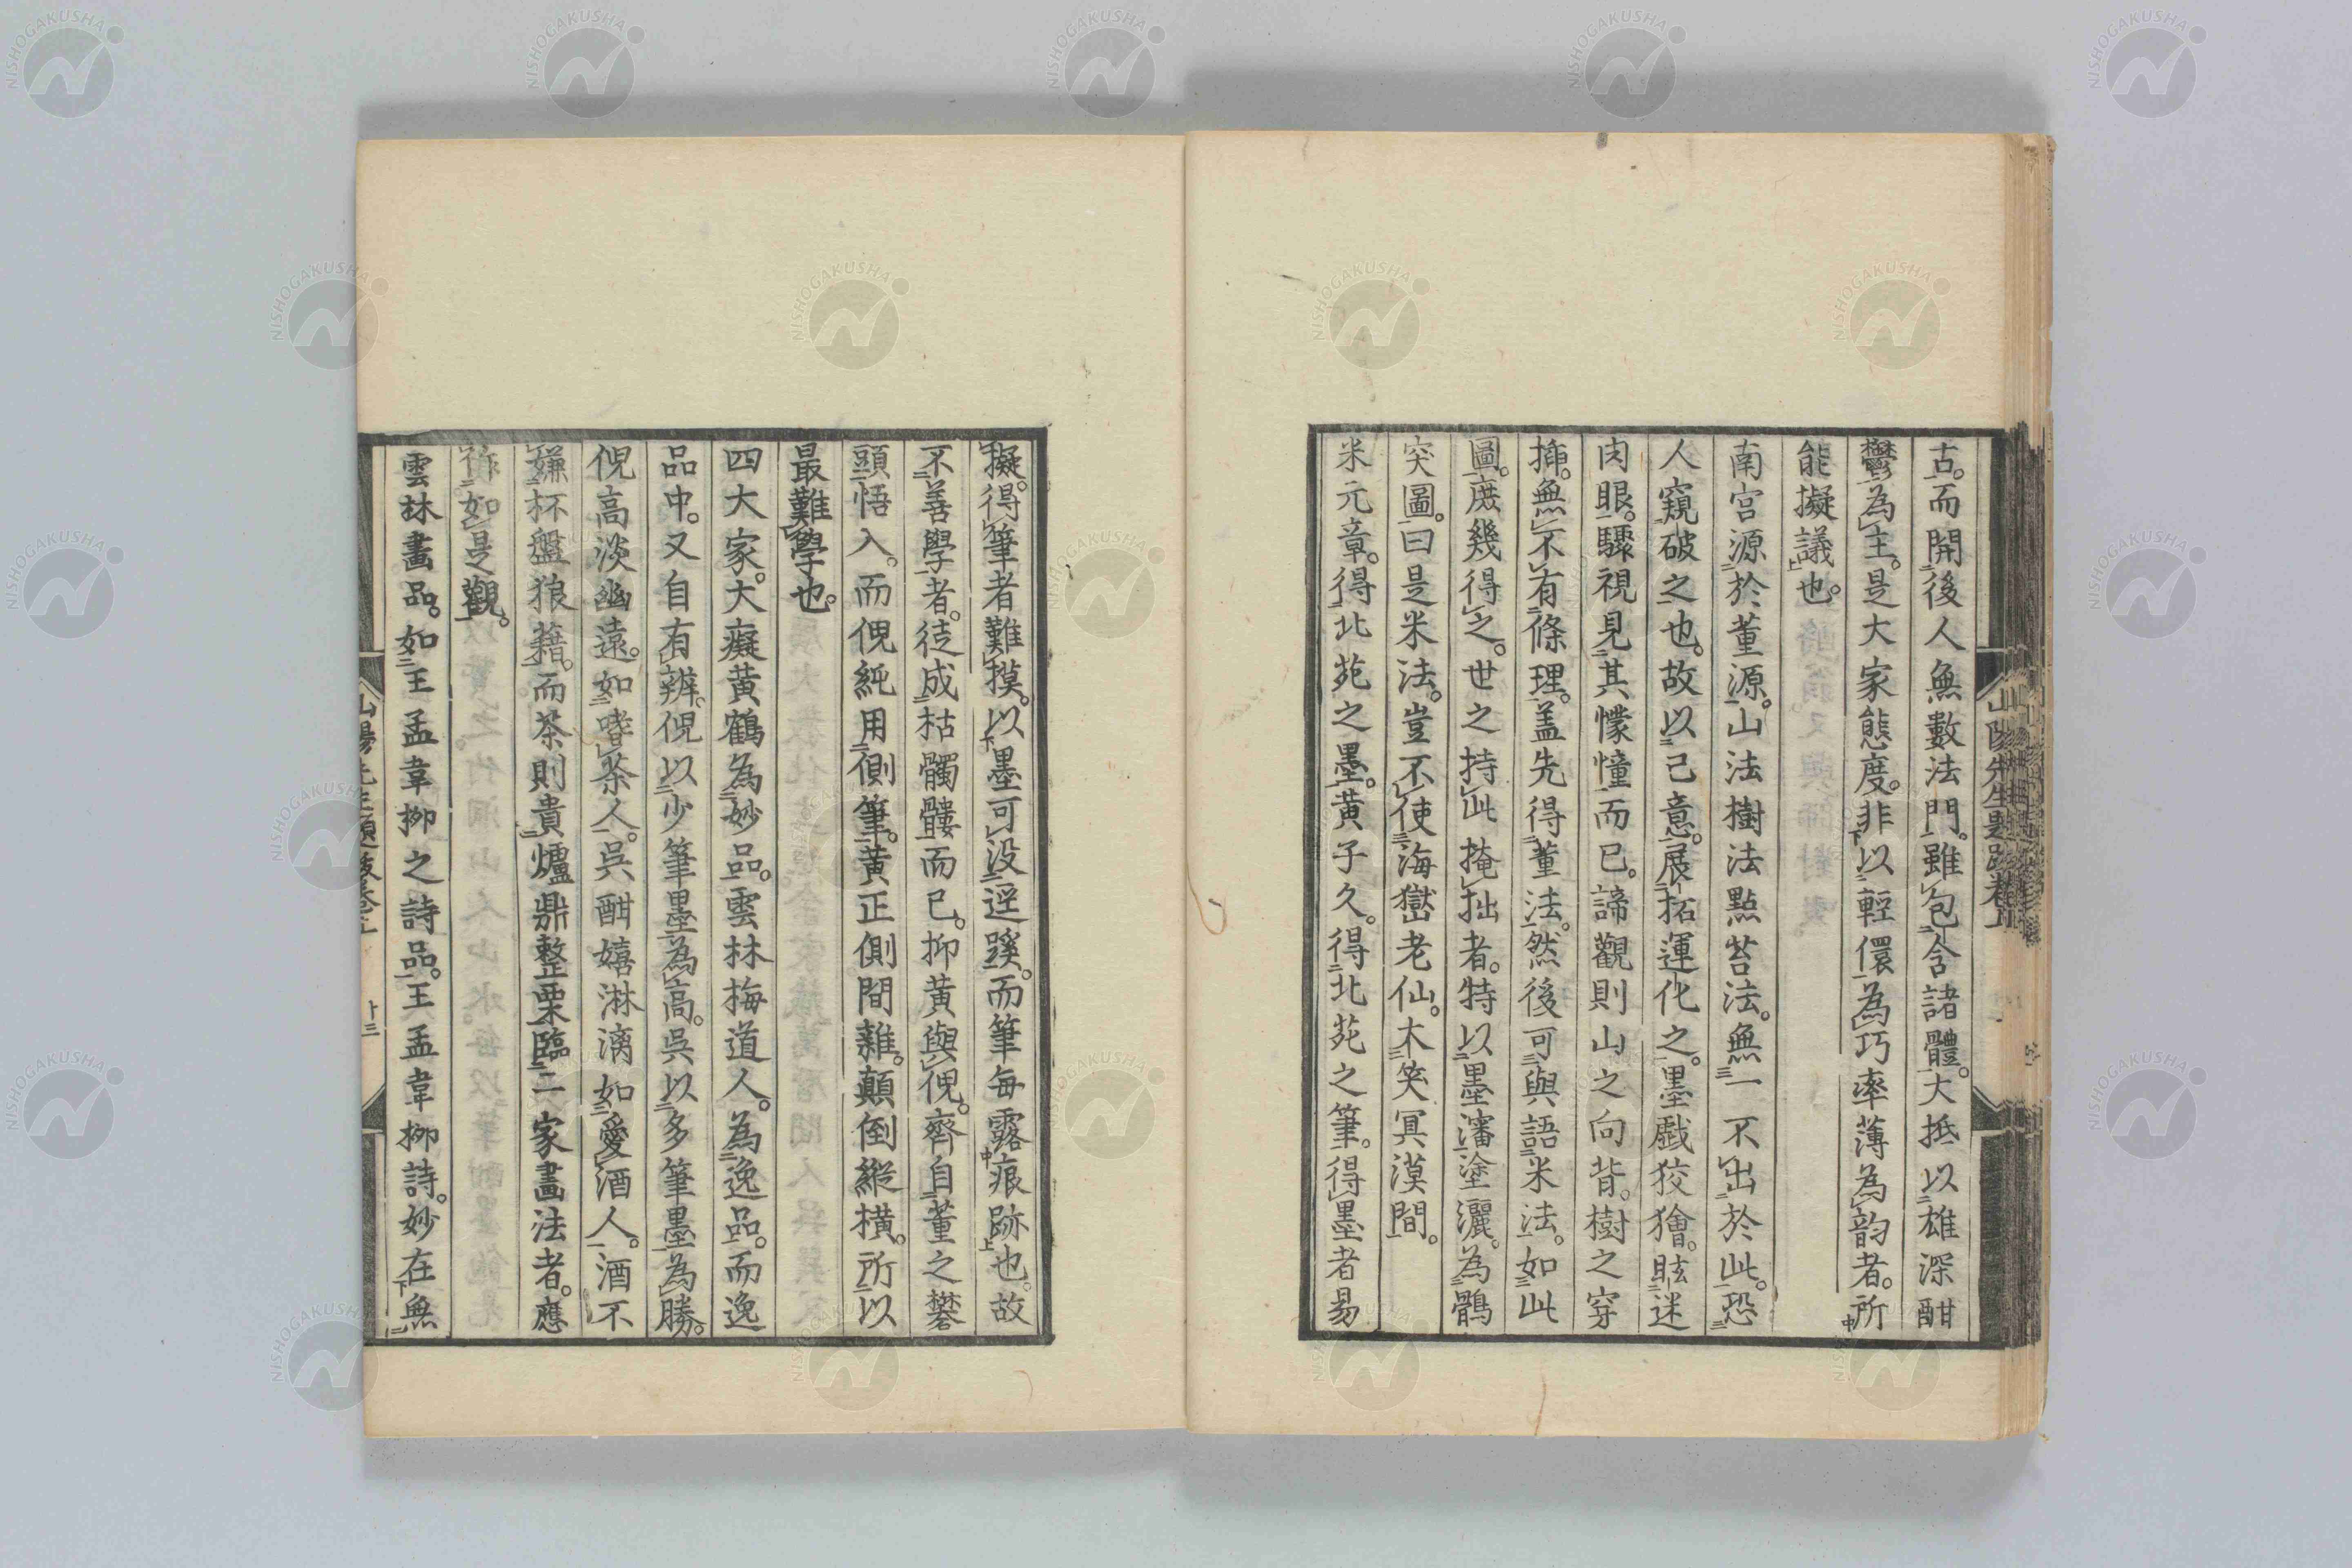 古。而開後人無數法門。雖包含諸體。大抵以雄深酣
鬱為主。是大家態度。非以輕儇為巧率薄為韵者。所
能擬議也。
南宮源於董源。山法樹法點苔法。無一不出於此。恐
人窺破之也。故以己意。展拓運化之。墨戲狡獪。眩迷
肉眼。驟視見其懞憧而已。諦觀則山之向背。樹之穿
插。無不有條理。蓋先得董法。然後可與語米法。如此
圖。庶幾得之。世之持此掩拙者。特以墨瀋塗灑。為鶻
突圖。曰是米法。豈不使海嶽老仙。木笑冥漠間。
米元章。得北苑之墨。黃子久。得北苑之筆。得墨者易
擬。得筆者難摸。以墨可沒逕蹊。而筆每露痕跡也。故
不善學者。徒成枯髑髏而已。抑黃與倪。齊自董之礬
頭悟入。而倪純用側筆。黃正側間雜。顛倒縱橫。所以
最難學也。
四大家。大癡黃鶴為妙品。雲林梅道人。為逸品。而逸
品中。又自有辨。倪以少筆墨為高。吳以多筆墨為勝。
倪高淡幽遠。如嗜茶人。吳酣嬉淋漓如愛酒人。酒不
嫌杯盤狼藉。而茶則貴爐鼎整栗臨二家畫法者。應
作如是觀。
雲林畫品。如王孟韋柳之詩品。王孟韋柳詩。妙在無
山陽先生題跋卷上
山陽先生題跋卷上
廿三
NISHOGAKUSHA